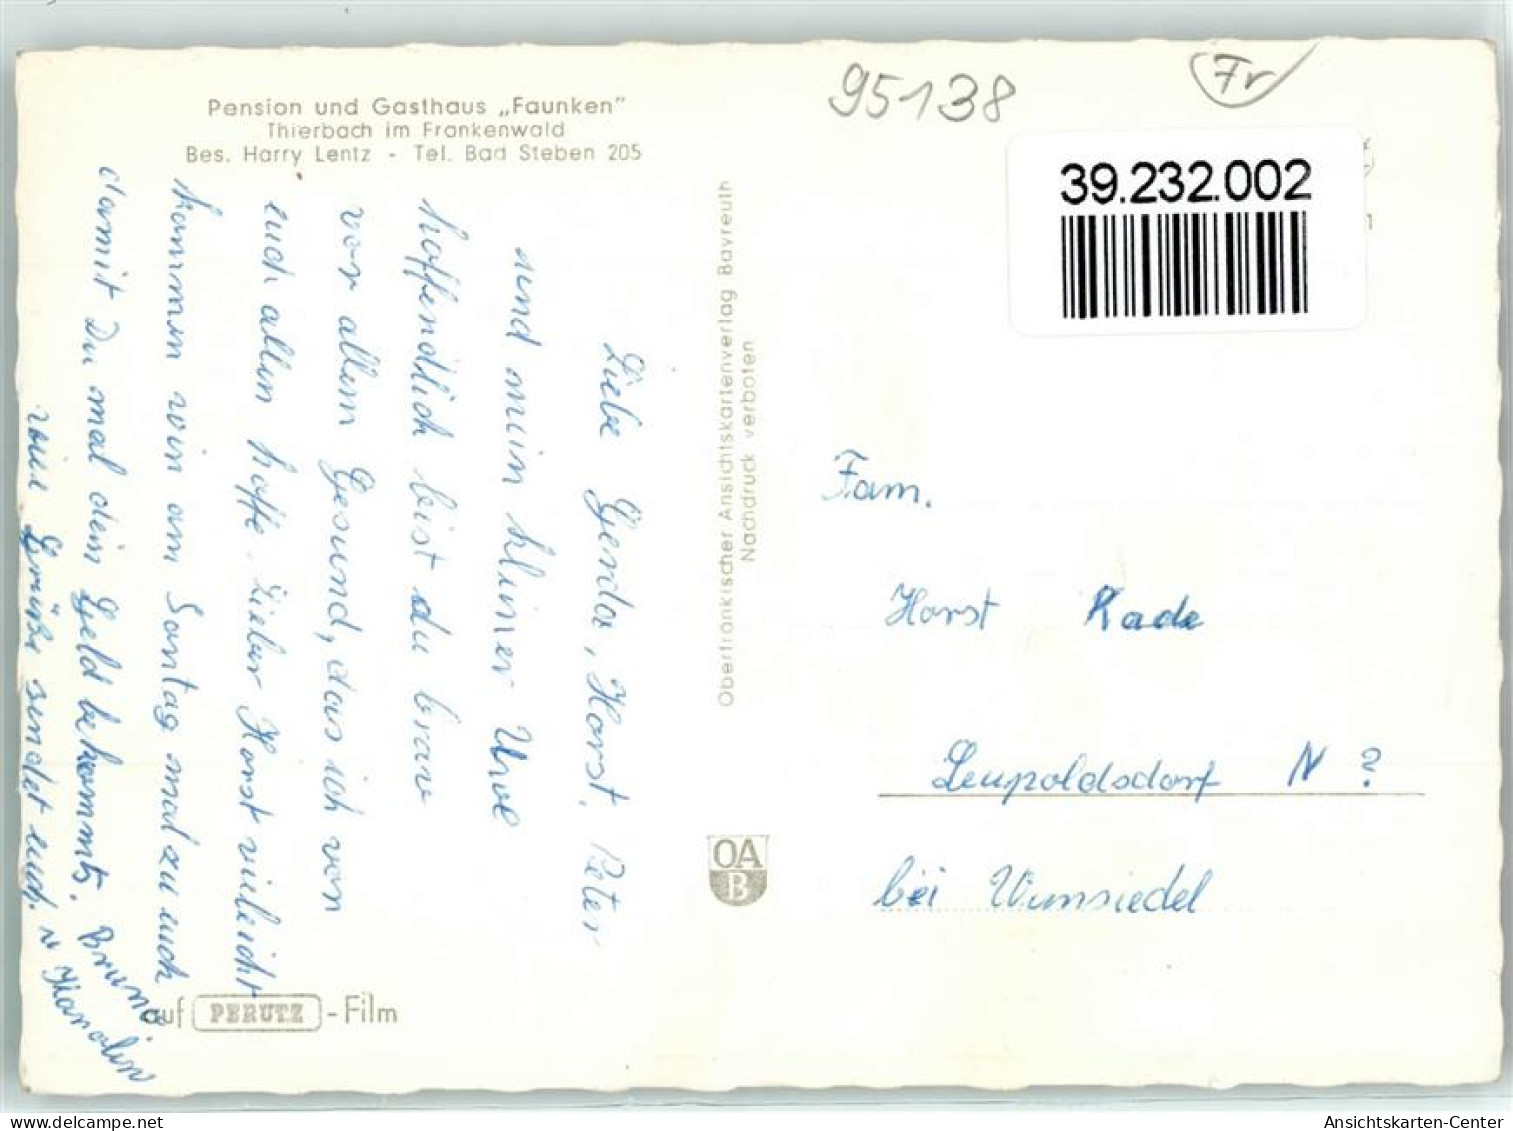 Pension und Gasthaus „Faunken"
Thierbach im Frankenwald
Bes. Harry Lentz - Tel. Bad Steben 205
Liebe Gerda, Horst, Peter
und mein kleiner Uwe
hoffendlich bist du brav
vor allem Gesund, das ich von
euch allen hoffe. Lieber Horst vieleicht
kommen wir am Sontag mal zu euch
damit Du mal dein Geld bekommts.
viele Grüße sendet euch
Bruno
u Karolin
auf PERUTZ - Film
Oberfränkischer Ansichtskartenverlag Bayreuth
Nachdruck verboten
OA
B
95138
Fr
39.232.002
Fam.
Horst Kade
Leupoldsdorf N ?
bei Wunsiedel
delcampe.net
Ansichtskarten-Center